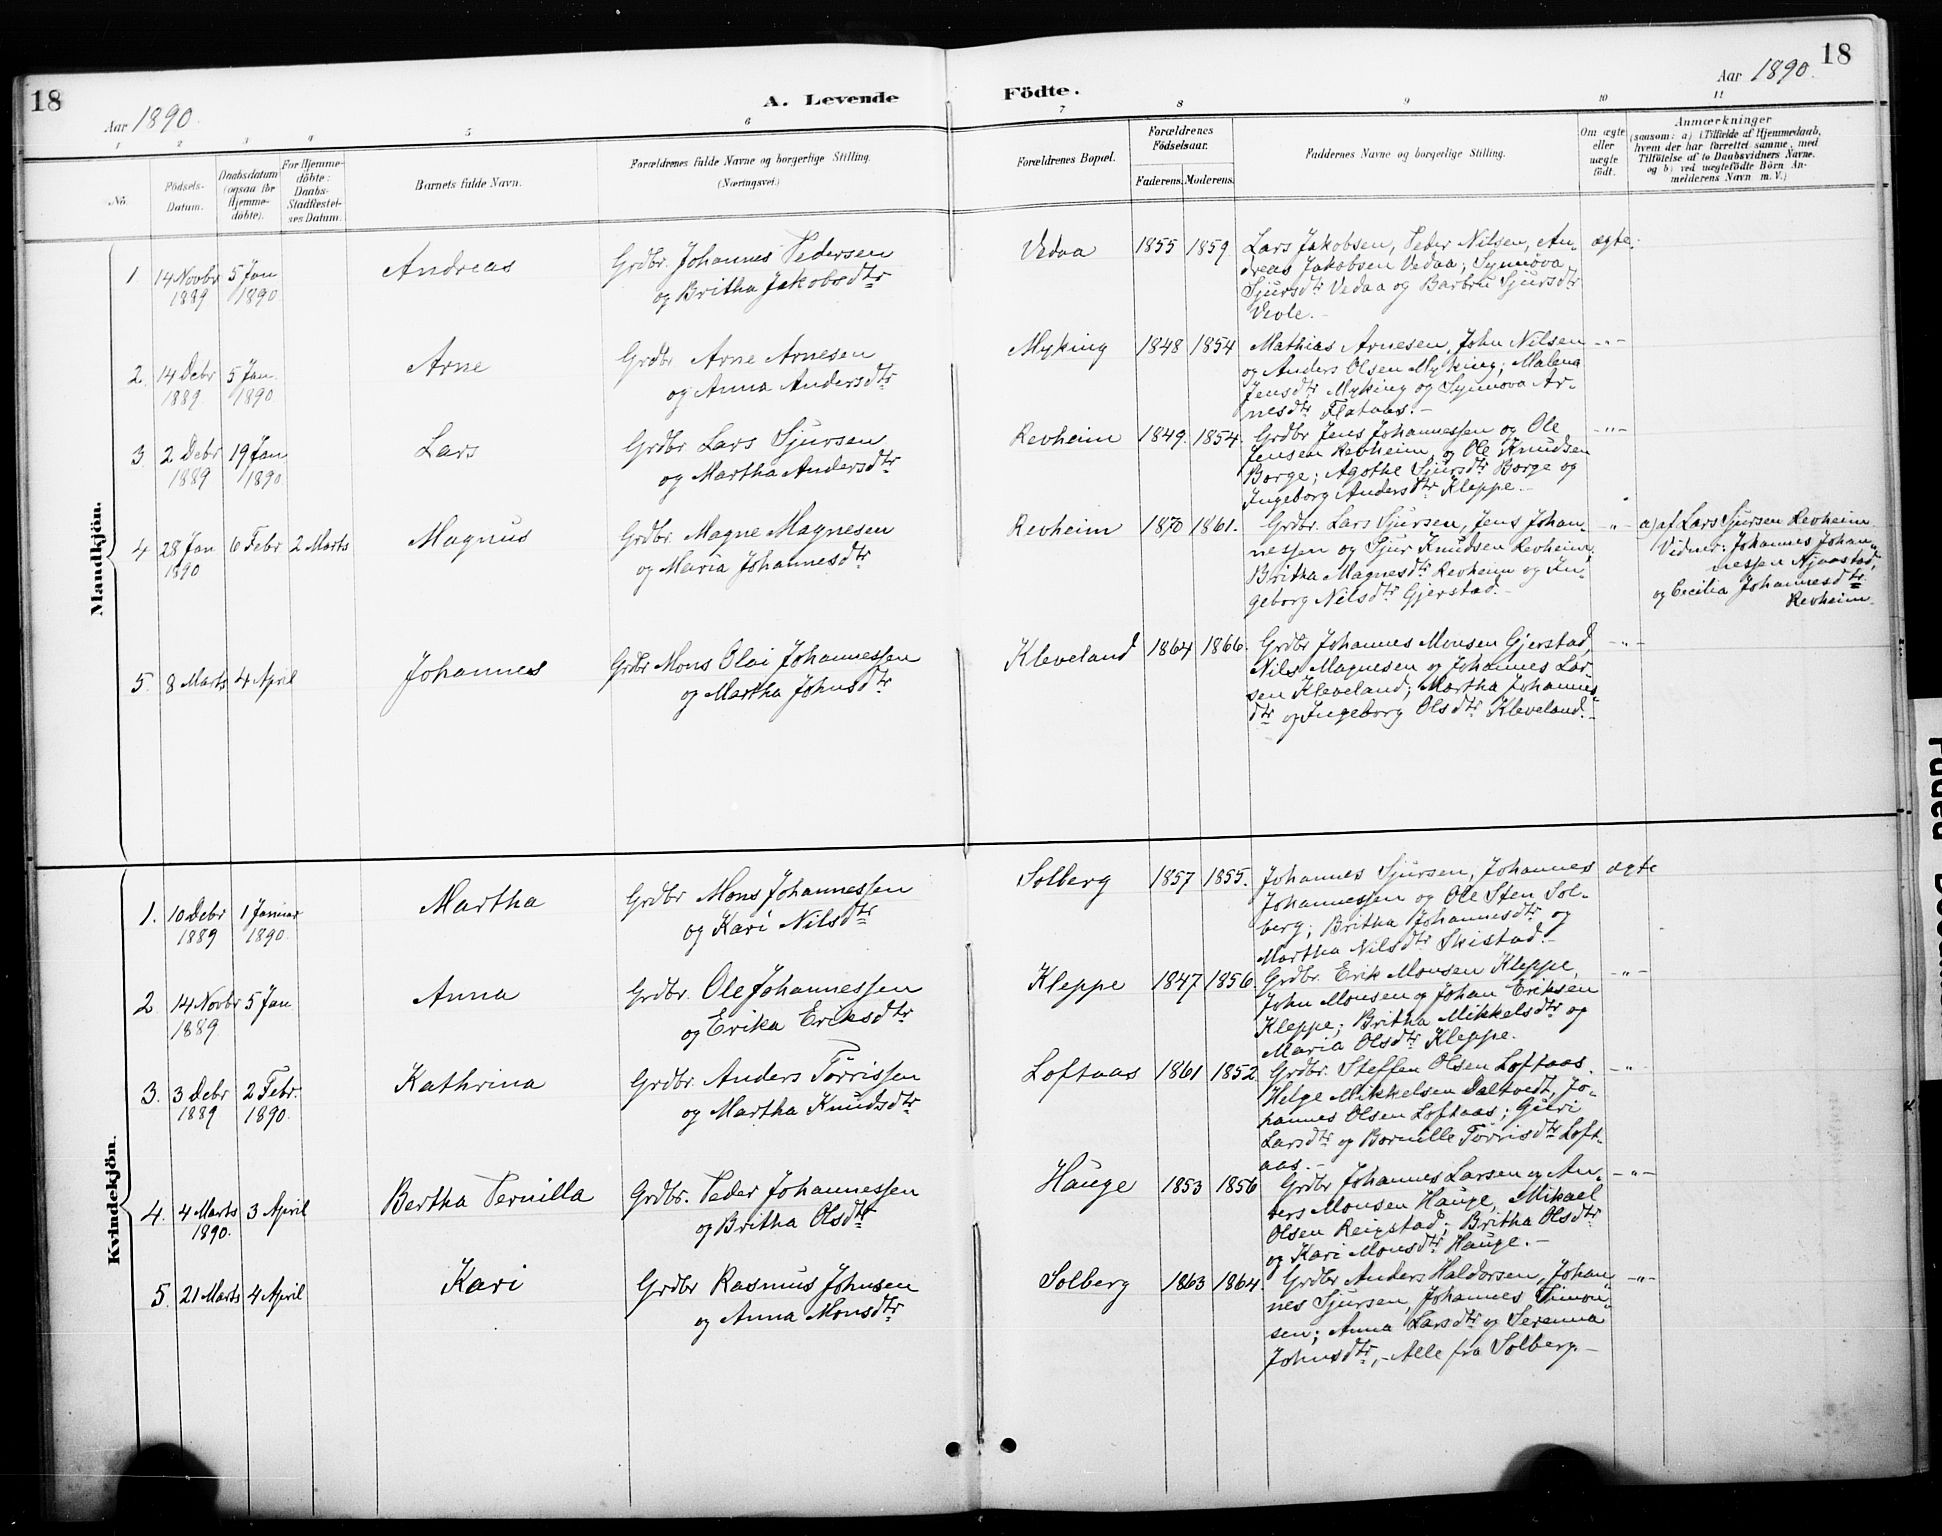 18
Aar 1890.
A. Levende
Födte.
Aar 1890.
18
1
2
3
4
5
6
7
8
9
10
11
No.
Födsels-
Datum.
Daabsdatum
(ogsaa for
Hjemme-
döbte).
For Hjemme-
döbte:
Daabs-
Stadfæstel-
ses Datum.
Barnets fulde Navn.
Forældrenes fulde Navne og borgerlige Stilling.
(Næringsvei.)
Forældrenes Bopæl.
Forældrenes
Födselsaar.
Faderens.
Moderens.
Faddernes Navne og borgerlige Stilling.
Om ægte
eller
uægte
födt.
Anmærkninger
(saasom: a) i Tilfælde af Hjemmedaab,
hvem der har forrettet samme, med
Tilföielse af to Daabsvidners Navne.
og b) ved uægtefödte Börn An-
melderens Navn m. V.)
Mandkjön.
1
14 Novbr
1889
5 Jan
1890
Andreas
Grdbr. Johannes Pedersen
og Britha Jakobsdtr
Vedaa
1855
1859
Lars Jakobsen, Peder Nilsen, An-
dreas Jakobsen Vedaa; Synnöva
Sjursdtr Vedaa og Barbru Sjursdtr
Veole.-
ægte.
2.
14 Debr
1889.
5 Jan.
1890
Arne
Grdbr Arne Arnesen
og Anna Andersdtr
Myking
1848
1854
Mathias Arnesen, John Nilsen
og Anders Olsen Myking; Malena
Jensdtr Myking og Synnova Ar-
nesdtr Flataas.-
-"-
3.
2 Debr
1889
19 Jan
1890.
Lars
Grdbr Lars Sjursen
og Martha Andersdtr
Revheim
1849.
1854.
Grdbr Jens Johannessen og Ole
Jensen Revheim, og Ole Knudsen
Borge; Agothe Sjursdtr Borge og
Ingeborg Andersdtr Kleppe.-
-"-
4
28 Jan
1890
6 Febr
2 Marts
Magnus
Grdbr. Magne Magnesen
og Maria Johannesdtr
Revheim
1870
1861.
Grdbr. Lars Sjursen, Jens Johan-
nessen og Sjur Knudsen Revheim;
Britha Magnesdtr Revheim og In-
geborg Nilsdtr Gjerstad.-
-"-
a) af Lars Sjursen Revheim
Vidner: Johannes Johan-
nessen
og Cecilia Johannesdtr
Revheim.
5.
8 Marts
4 April
Johannes
Grdbr Mons Olai Johannessen
og Martha Johnsdtr
Kleveland
1864
1866.
Grdbr Johannes Monsen Gjerstad,
Nils Magnesen og Johannes Lar-
sen Kleveland; Martha Johannes-
dtr og Ingeborg Olsdtr Kleveland.-
-"-
Kvindekjön.
1.
10 Debr
1889
1 Januar
1890.
Martha
Grdbr Mons Johannessen
og Kari Nilsdtr
Solberg
1857
1855.
Johannes Sjursen, Johannes
Johannessen og Ole Sten Sol-
berg; Britha Johannesdtr og
Martha Nilsdtr Skistad.-
ægte
2
14 Novbr
1889
5 Jan
Anna
Grdbr. Ole Johannessen
og Erika Eriksdtr
Kleppe
1847
1856
Grdbr. Erik Monsen Kleppe,
John Monsen og Johan Eriksen
Kleppe; Britha Mikkelsdtr og
Maria Olsdtr Kleppe.
-"-
3.
3 Debr
1889
2 Febr.
1890.
Kathrina
Grdbr. Anders Törrissen
og Martha Knudsdtr
Loftaas
1861
1852
Grdbr. Steffen Olsen Loftaas.
Helge Mikkelsen Daltvedt, Jo-
hannes Olsen Loftaas; Guri
Larsdtr og Bornille Törrisdtr Loft-
aas.-
-"-
4.
4 Marts
1890.
3 April
Bertha Pernilla
Grdbr. Peder Johannessen
og Britha Olsdtr
Hauge
1853
1856
Grdbr Johannes Larsen og An-
ders Monsen Hauge, Mikael
Olsen Reigstad; Britha Olsdtr
og Kari Monsdtr Hauge.-
-"-
5.
21 Marts
4 April
Kari
Grdbr Rasmus Johnsen
og Anna Monsdtr
Solberg
1863
1864.
Grdbr Anders Haldorsen, Johan-
nes Sjursen, Johannes Simon-
sen; Anna Larsdtr og Serenna
Johnsdtr,- Alle fra Solberg.-
-"-